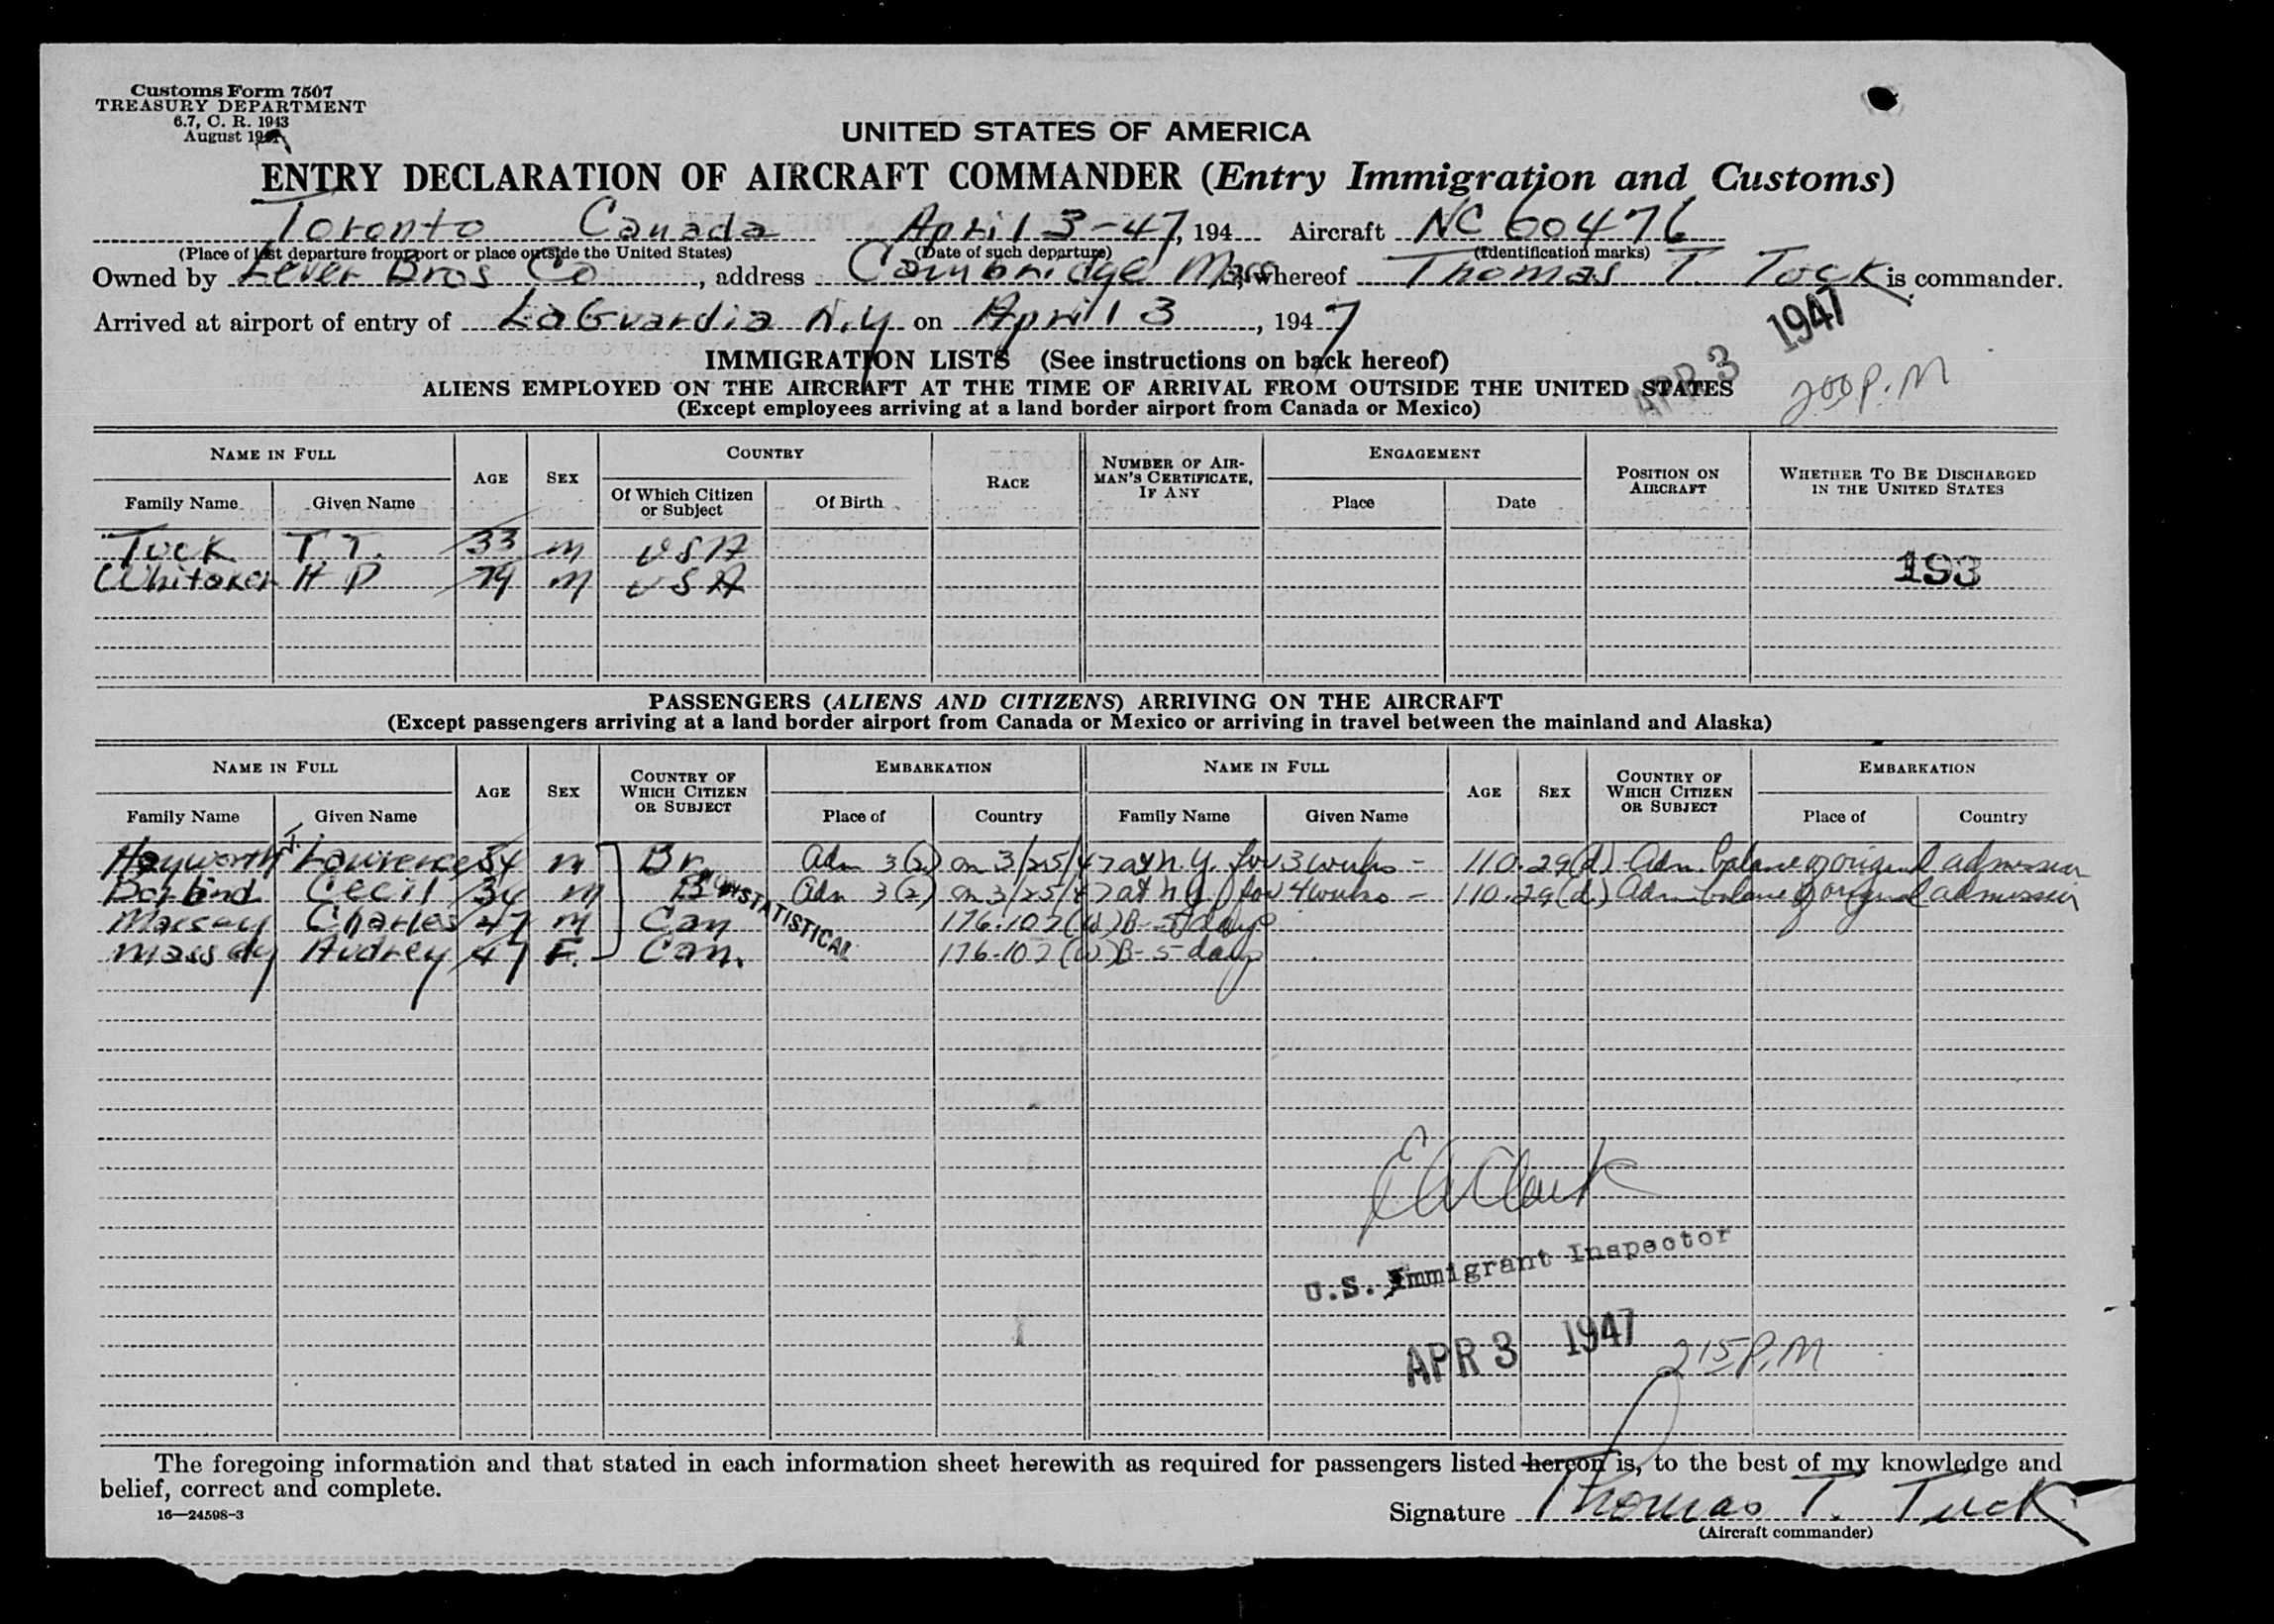 Customs Form 7507
TREASURY DEPARTMENT
6.7, C. R. 1943
August
UNITED STATES OF AMERICA
ENTRY DECLARATION OF AIRCRAFT COMMANDER (Entry Immigration and Customs)
Toronto Canada April 3-47, 194 Aircraft NC 60476
(Place of last departure from port or place outside the United States) (Date of such departure) (Identification marks)
Owned by Lever Bros Co, address Cambridge Mass, whereof Thomas T. Tuck is commander.
Arrived at airport of entry of LaGuardia N.Y on April 3, 1947
APR 3 1947
200 P.M
IMMIGRATION LISTS (See instructions on back hereof)
ALIENS EMPLOYED ON THE AIRCRAFT AT THE TIME OF ARRIVAL FROM OUTSIDE THE UNITED STATES
(Except employees arriving at a land border airport from Canada or Mexico)
NAME IN FULL AGE SEX COUNTRY RACE NUMBER OF AIRMAN'S CERTIFICATE, IF ANY ENGAGEMENT POSITION ON AIRCRAFT WHETHER TO BE DISCHARGED IN THE UNITED STATES
Family Name Given Name Of Which Citizen or Subject Of Birth Place Date
Tuck T. T. 33 m USA
Whitaker H P m USA
193
PASSENGERS (ALIENS AND CITIZENS) ARRIVING ON THE AIRCRAFT
(Except passengers arriving at a land border airport from Canada or Mexico or arriving in travel between the mainland and Alaska)
NAME IN FULL AGE SEX COUNTRY OF WHICH CITIZEN OR SUBJECT EMBARKATION NAME IN FULL AGE SEX COUNTRY OF WHICH CITIZEN OR SUBJECT EMBARKATION
Family Name Given Name Place of Country Family Name Given Name Place of Country
Hayworth Lawrence 54 m Br. Adm 3(2) on 3/25/47 at N.Y. for 3 weeks - 110.29(d) Adm. balance of original admission
Cecil 34 m Br Adm 3(2) on 3/25/47 at N.Y. for 4 weeks - 110.29(d) Adm balance of original admission
Massey Charles 47 m Can 176.107(w)B-5 days
Massey Audrey 47 F. Can. 176-107(w)B-5 days
NONSTATISTICAL
E A Clark
U.S. Immigrant Inspector
APR 3 1947 215 P.M
The foregoing information and that stated in each information sheet herewith as required for passengers listed hereon is, to the best of my knowledge and
belief, correct and complete.
16—24598-3
Signature Thomas T. Tuck
(Aircraft commander)